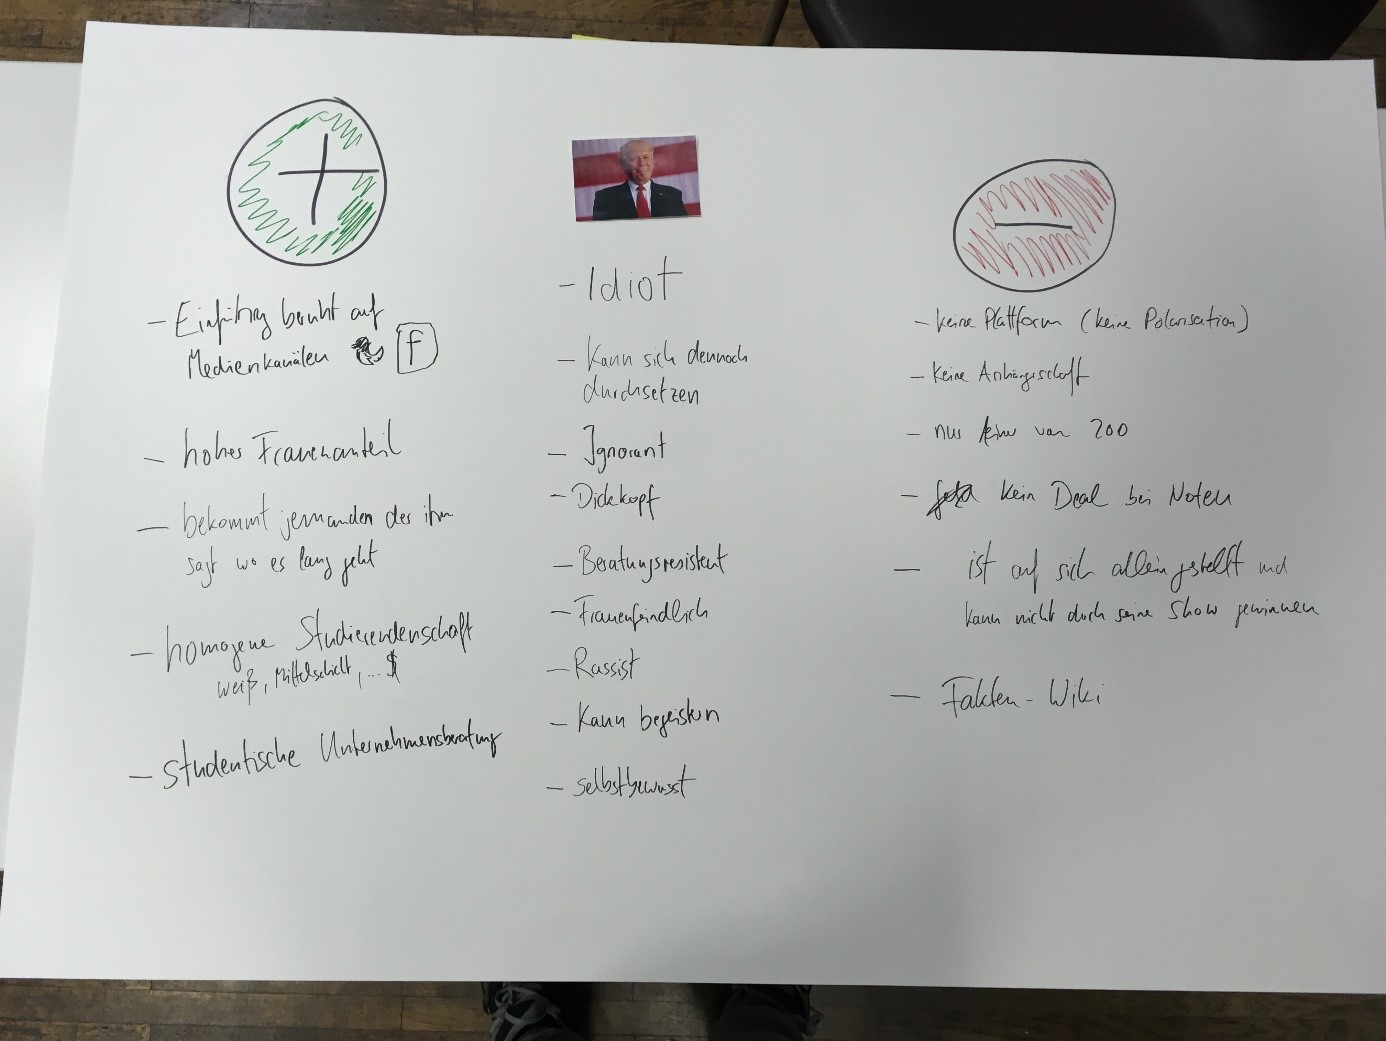 - Einführung beruht auf
Medienkanälen f
- hoher Frauenanteil
- bekommt jemanden der ihm
sagt wo es lang geht
- homogene Studierendenschaft
weiß, Mittelschicht, ... $
- studentische Unternehmensberatung
- Idiot
- Kann sich dennoch
durchsetzen
- Ignorant
- Dickkopf
- Beratungsresistent
- Frauenfeindlich
- Rassist
- Kann begeistern
- selbstbewusst
- keine Plattform (keine Polarisation)
- keine Anhängerschaft
- nur einer von 200
- kein Deal bei Noten
- ist auf sich allein gestellt und
kann nicht durch seine Show gewinnen
- Fakten - Wiki